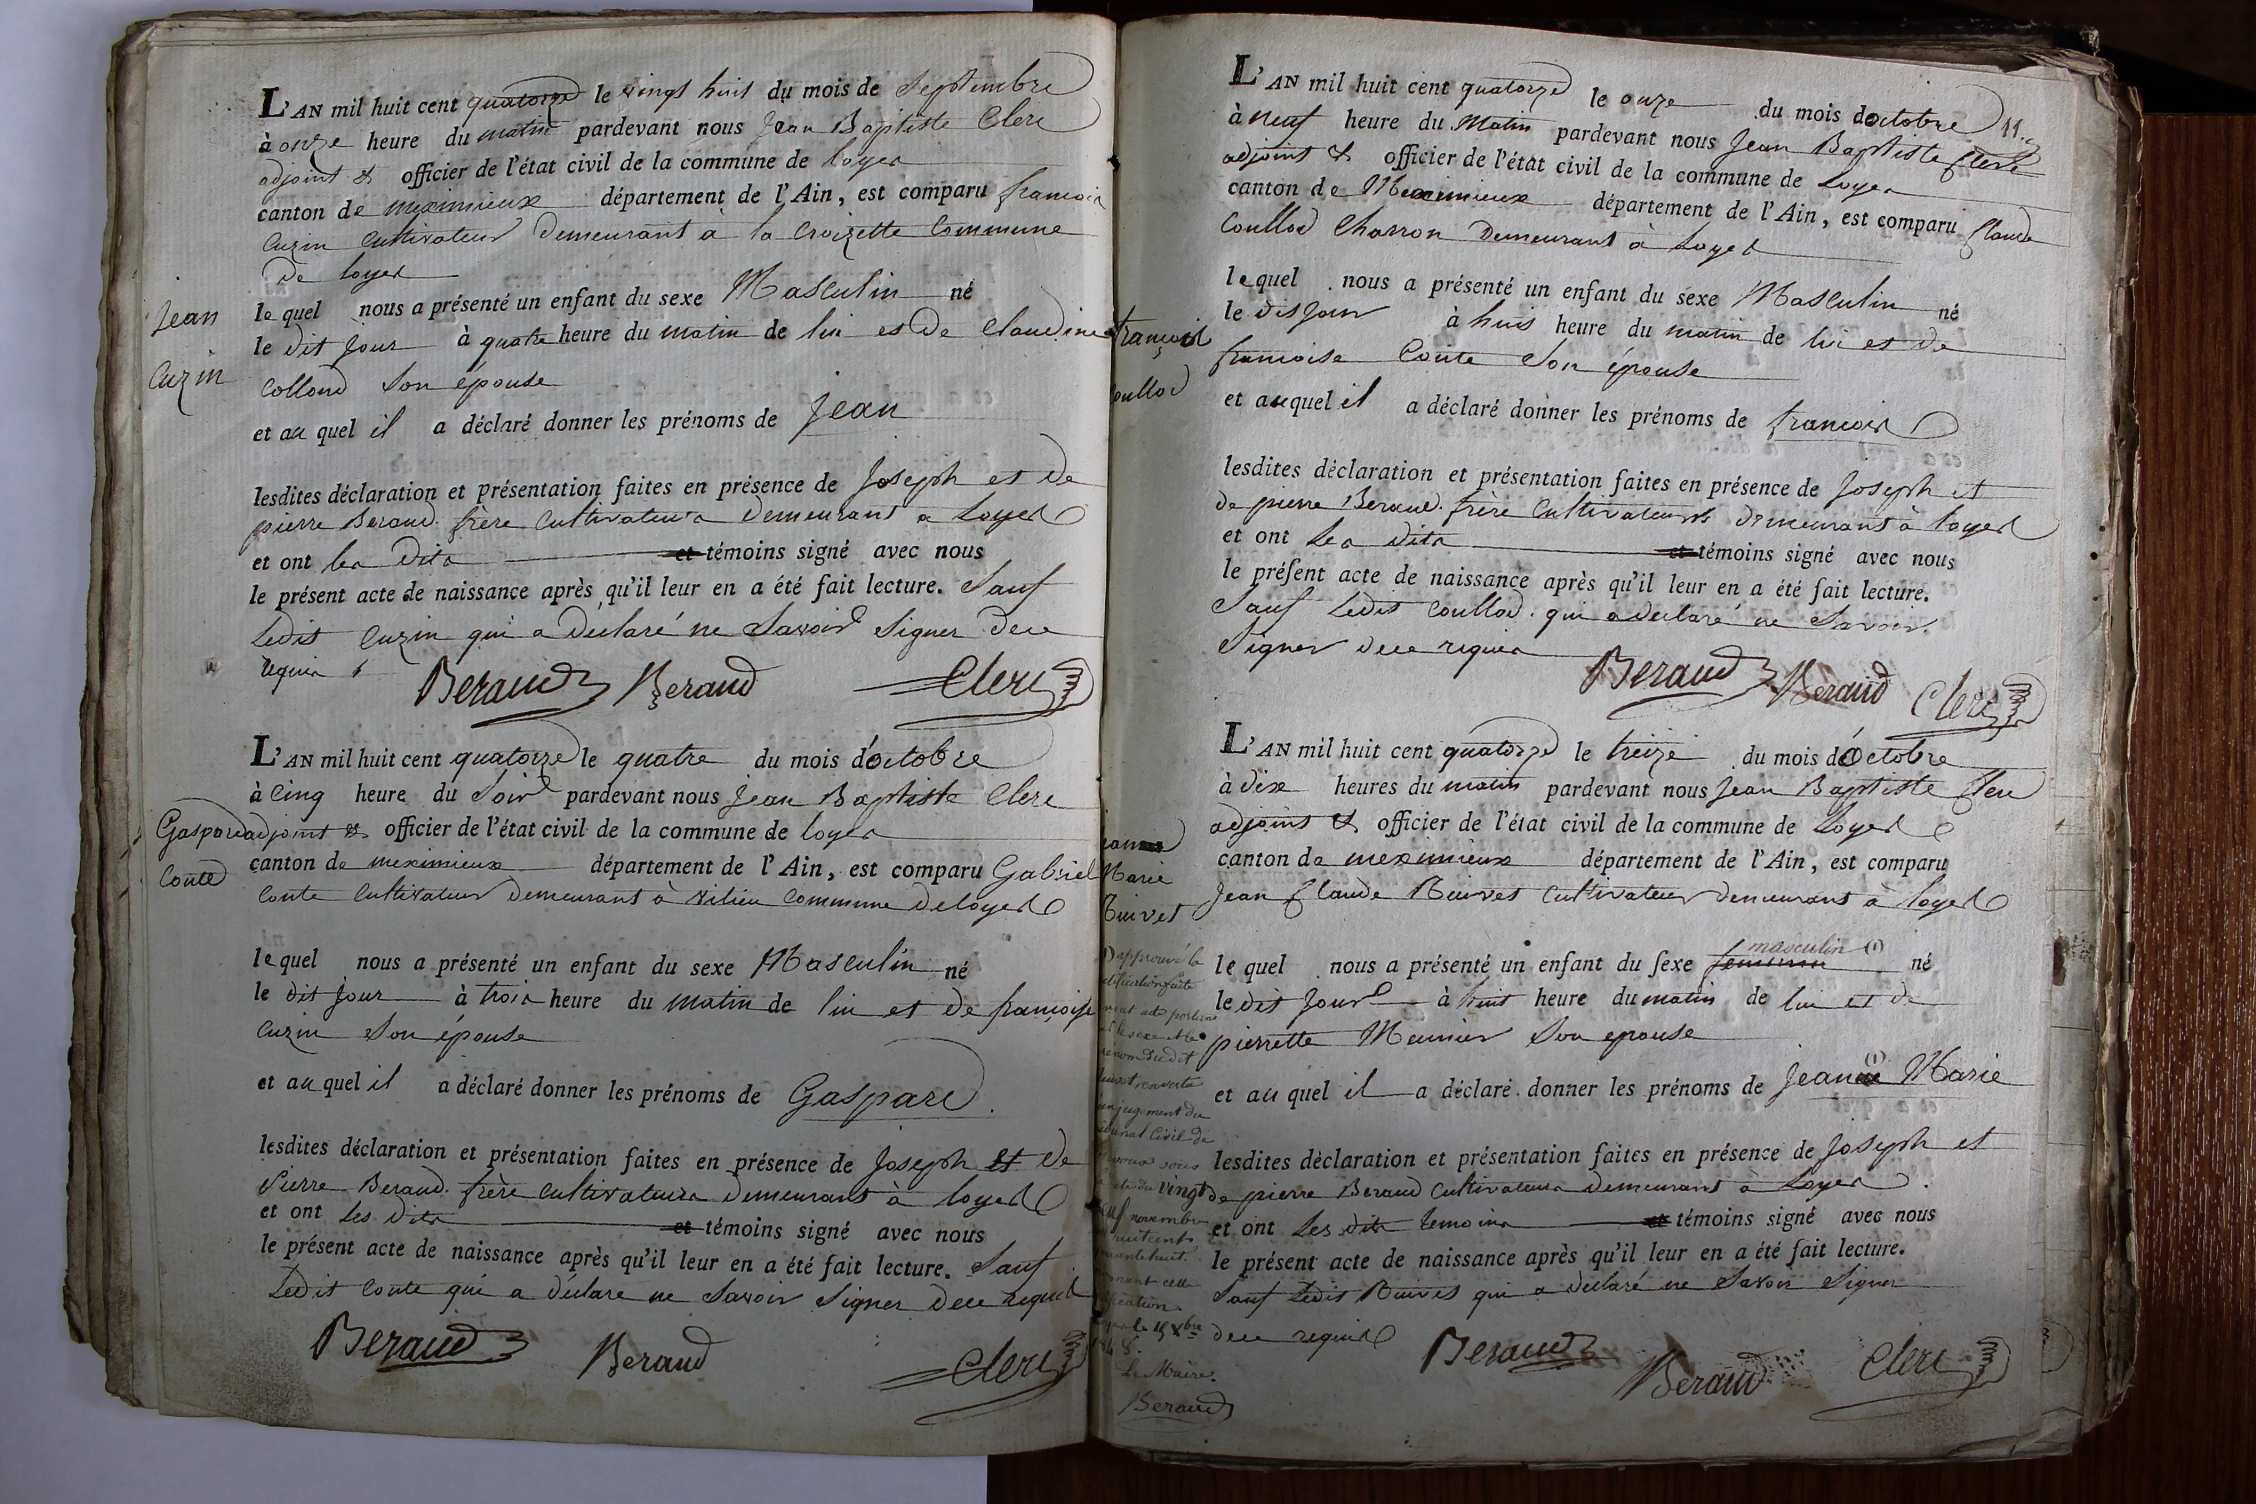 L'AN mil huit cent quatorze le vingt huit du mois de Septembre
à onze heure du matin pardevant nous Jean Baptiste Clerc
adjoint & officier de l'état civil de la commune de loyes
canton de meximieux département de l'Ain, est comparu francois
Cuzin Cultivateur Demeurant à la Croizette Commune
De loyes
Jean
Cuzin
lequel nous a présenté un enfant du sexe Masculin né
le dit jour à quatre heure du matin de lui et De Claudine
Collond Son épouse
et au quel il a déclaré donner les prénoms de Jean
lesdites déclaration et présentation faites en présence de Joseph et De
pierre Beraud frère Cultivateurs Demeurant a Loyes
et ont les Dits et témoins signé avec nous
le présent acte de naissance après qu'il leur en a été fait lecture. Sauf
Ledit Cuzin qui a Déclaré ne Savoir Signer Dece
requis
Beraud Beraud Clerc
L'AN mil huit cent quatorze le quatre du mois d'octobre
à Cinq heure du Soir pardevant nous Jean Baptiste Clerc
Gaspard
Conte
adjoint & officier de l'état civil de la commune de loyes
canton de meximieux département de l'Ain, est comparu Gabriel
Conte Cultivateur Demeurant à vilieu Commune De loyes
lequel nous a présenté un enfant du sexe Masculin né
le dit jour à trois heure du matin de lui et De françoise
Cuzin Son épouse
et au quel il a déclaré donner les prénoms de Gaspard
lesdites déclaration et présentation faites en présence de Joseph et De
Pierre Beraud frère Cultivateurs Demeurant à loyes
et ont les Dits et témoins signé avec nous
le présent acte de naissance après qu'il leur en a été fait lecture. Sauf
Ledit Conte qui a Déclaré ne Savoir Signer Dece requis
Beraud Beraud Clerc
11.
L'AN mil huit cent quatorze le onze du mois d'octobre
à neuf heure du Matin pardevant nous Jean Baptiste Clerc
adjoint & officier de l'état civil de la commune de Loyes
canton de Meximieux département de l'Ain, est comparu Claude
Coullod Charron Demeurant à Loyes
François
Coullod
lequel nous a présenté un enfant du sexe Masculin né
le dit jour à huit heure du matin de lui et De
francoise Conte Son épouse
et auquel il a déclaré donner les prénoms de francois
lesdites déclaration et présentation faites en présence de Joseph et
De pierre Beraud frère Cultivateurs Demeurant à loyes
et ont Les Dits et témoins signé avec nous
le présent acte de naissance après qu'il leur en a été fait lecture.
Sauf Ledit Coullod qui a Déclaré ne Savoir
Signer Dece requis
Beraud Beraud Clerc
L'AN mil huit cent quatorze le treize du mois d'Octobre
à Dix heures du matin pardevant nous Jean Baptiste Clerc
adjoint & officier de l'état civil de la commune de Loyes
canton de meximieux département de l'Ain, est comparu
Jean Claude Ruivet Cultivateur Demeurant à loyes
Marie
Ruivet
masculin (1)
lequel nous a présenté un enfant du sexe feminin né
le dit jour à huit heure du matin de lui et De
pierrette Meunier Son epouse
(1)
et au quel il a déclaré donner les prénoms de Jeanne Marie
lesdites déclaration et présentation faites en présence de Joseph et
De pierre Beraud Cultivateurs Demeurant à Loyes
et ont Les Dits temoins et témoins signé avec nous
le présent acte de naissance après qu'il leur en a été fait lecture.
Sauf Ledit Ruivet qui a Déclaré ne Savoir Signer
Dece requis
Beraud Beraud Clerc
approuvé la
rectification faite
acte portant
le sexe et le
prénom Dudit
Ruivet
jugement du
tribunal Civil de
vingt
novembre
huit cent
quarante huit
cette
le 15 Xbre
Le Maire.
Beraud